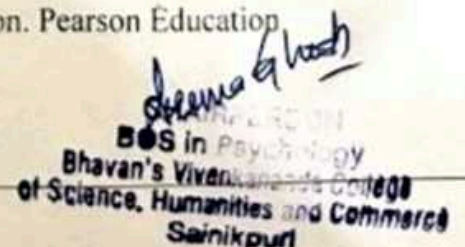 on. Pearson Education
BOS in Psychology
Bhavan's Vivekananda College
of Science, Humanities and Commerce
Sainikpuri